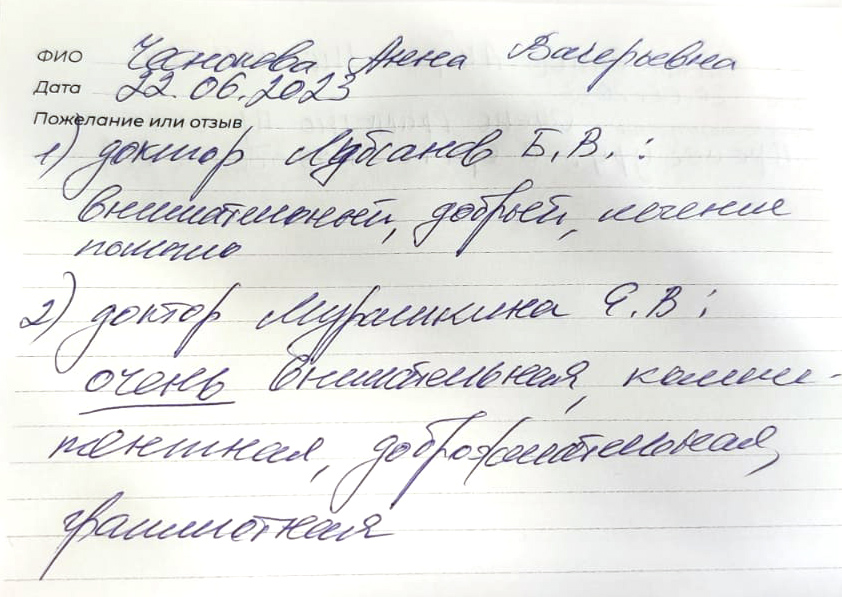 ФИО Чапокова Анна Валерьевна
Дата 22.06.2023
Пожелание или отзыв
1) доктор Лубсанов Б.В.:
внимательный, добрый, лечение
помогло
2) доктор Мурашкина Я.В:
очень внимательная, компе-
тентная, доброжелательная,
грамотная